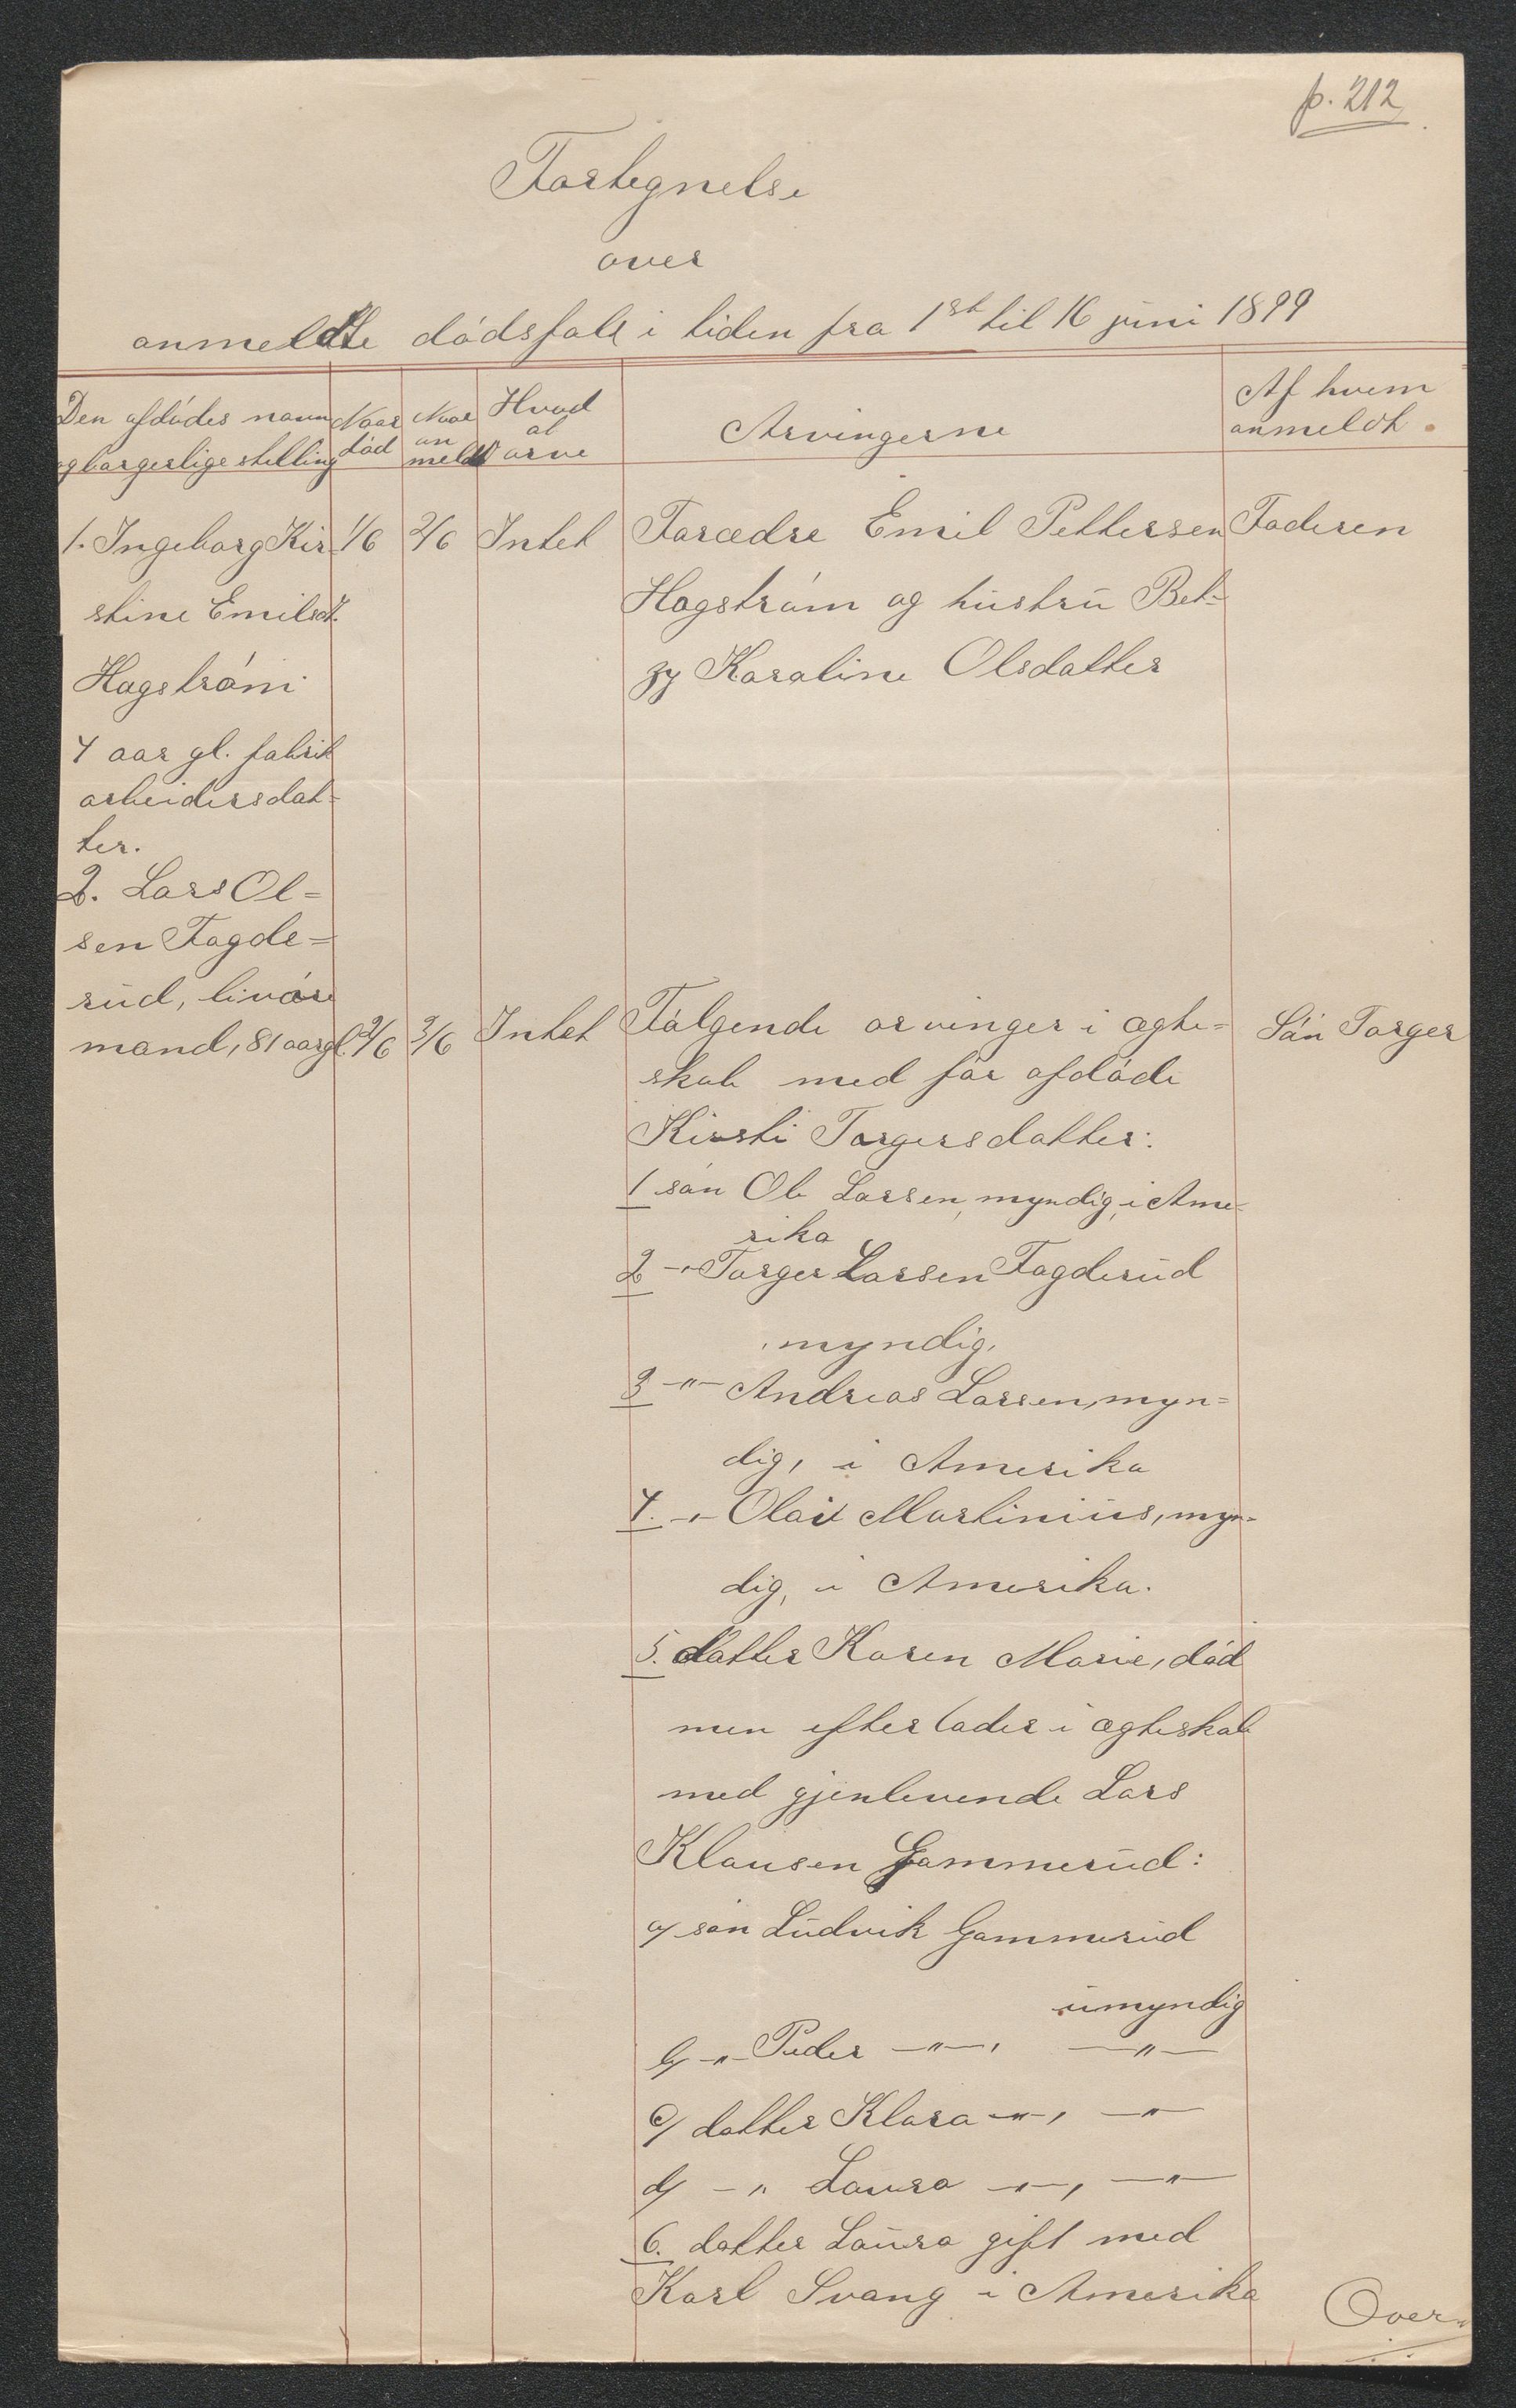 p. 212
Fortegnelse
over
anmeldte dødsfald i tiden fra 1st til 16 juni 1899
Den afdødes navn og borgerlige stilling
Naar død
Naar anmeldt
Hvad at arve
Arvingerne
Af hvem anmeldt.
1. Ingeborg Kir- 1/6 2/6 Intet Forædre Emil Pettersen Faderen
stine Emilsdt. Hagstrøm og hustru Bet=
Hagstrøm zy Karoline Olsdatter
4 aar gl. fabrik
arbeidersdat=
ter.
2. Lars Ol=
sen Fagde=
rud, livøre
mand, 81 aar gl. 2/6 3/6 Intet Følgende arvinger i ægte= Søn Torger
skab med før afdøde
Kirsti Torgersdatter:
1 søn Ole Larsen, myndig, i Ame-
rika
2 -"- Torger Larsen Fagderud
myndig.
3 -"- Andreas Larsen, myn=
dig, i Amerika
4. -"- Olai Martinius, myn-
dig, i Amerika.
5. datter Karen Marie, død
men efterlader i ægteskab
med gjenlevende Lars
Klausen Gammerud:
a/ søn Ludvik Gammerud
umyndig
b/ -"- Peder -"-, -"-
c/ datter Klara -"-, -"-
d/ -"- Laura -"-, -"-
6. datter Laura gift med
Karl Svang i Amerika
Over